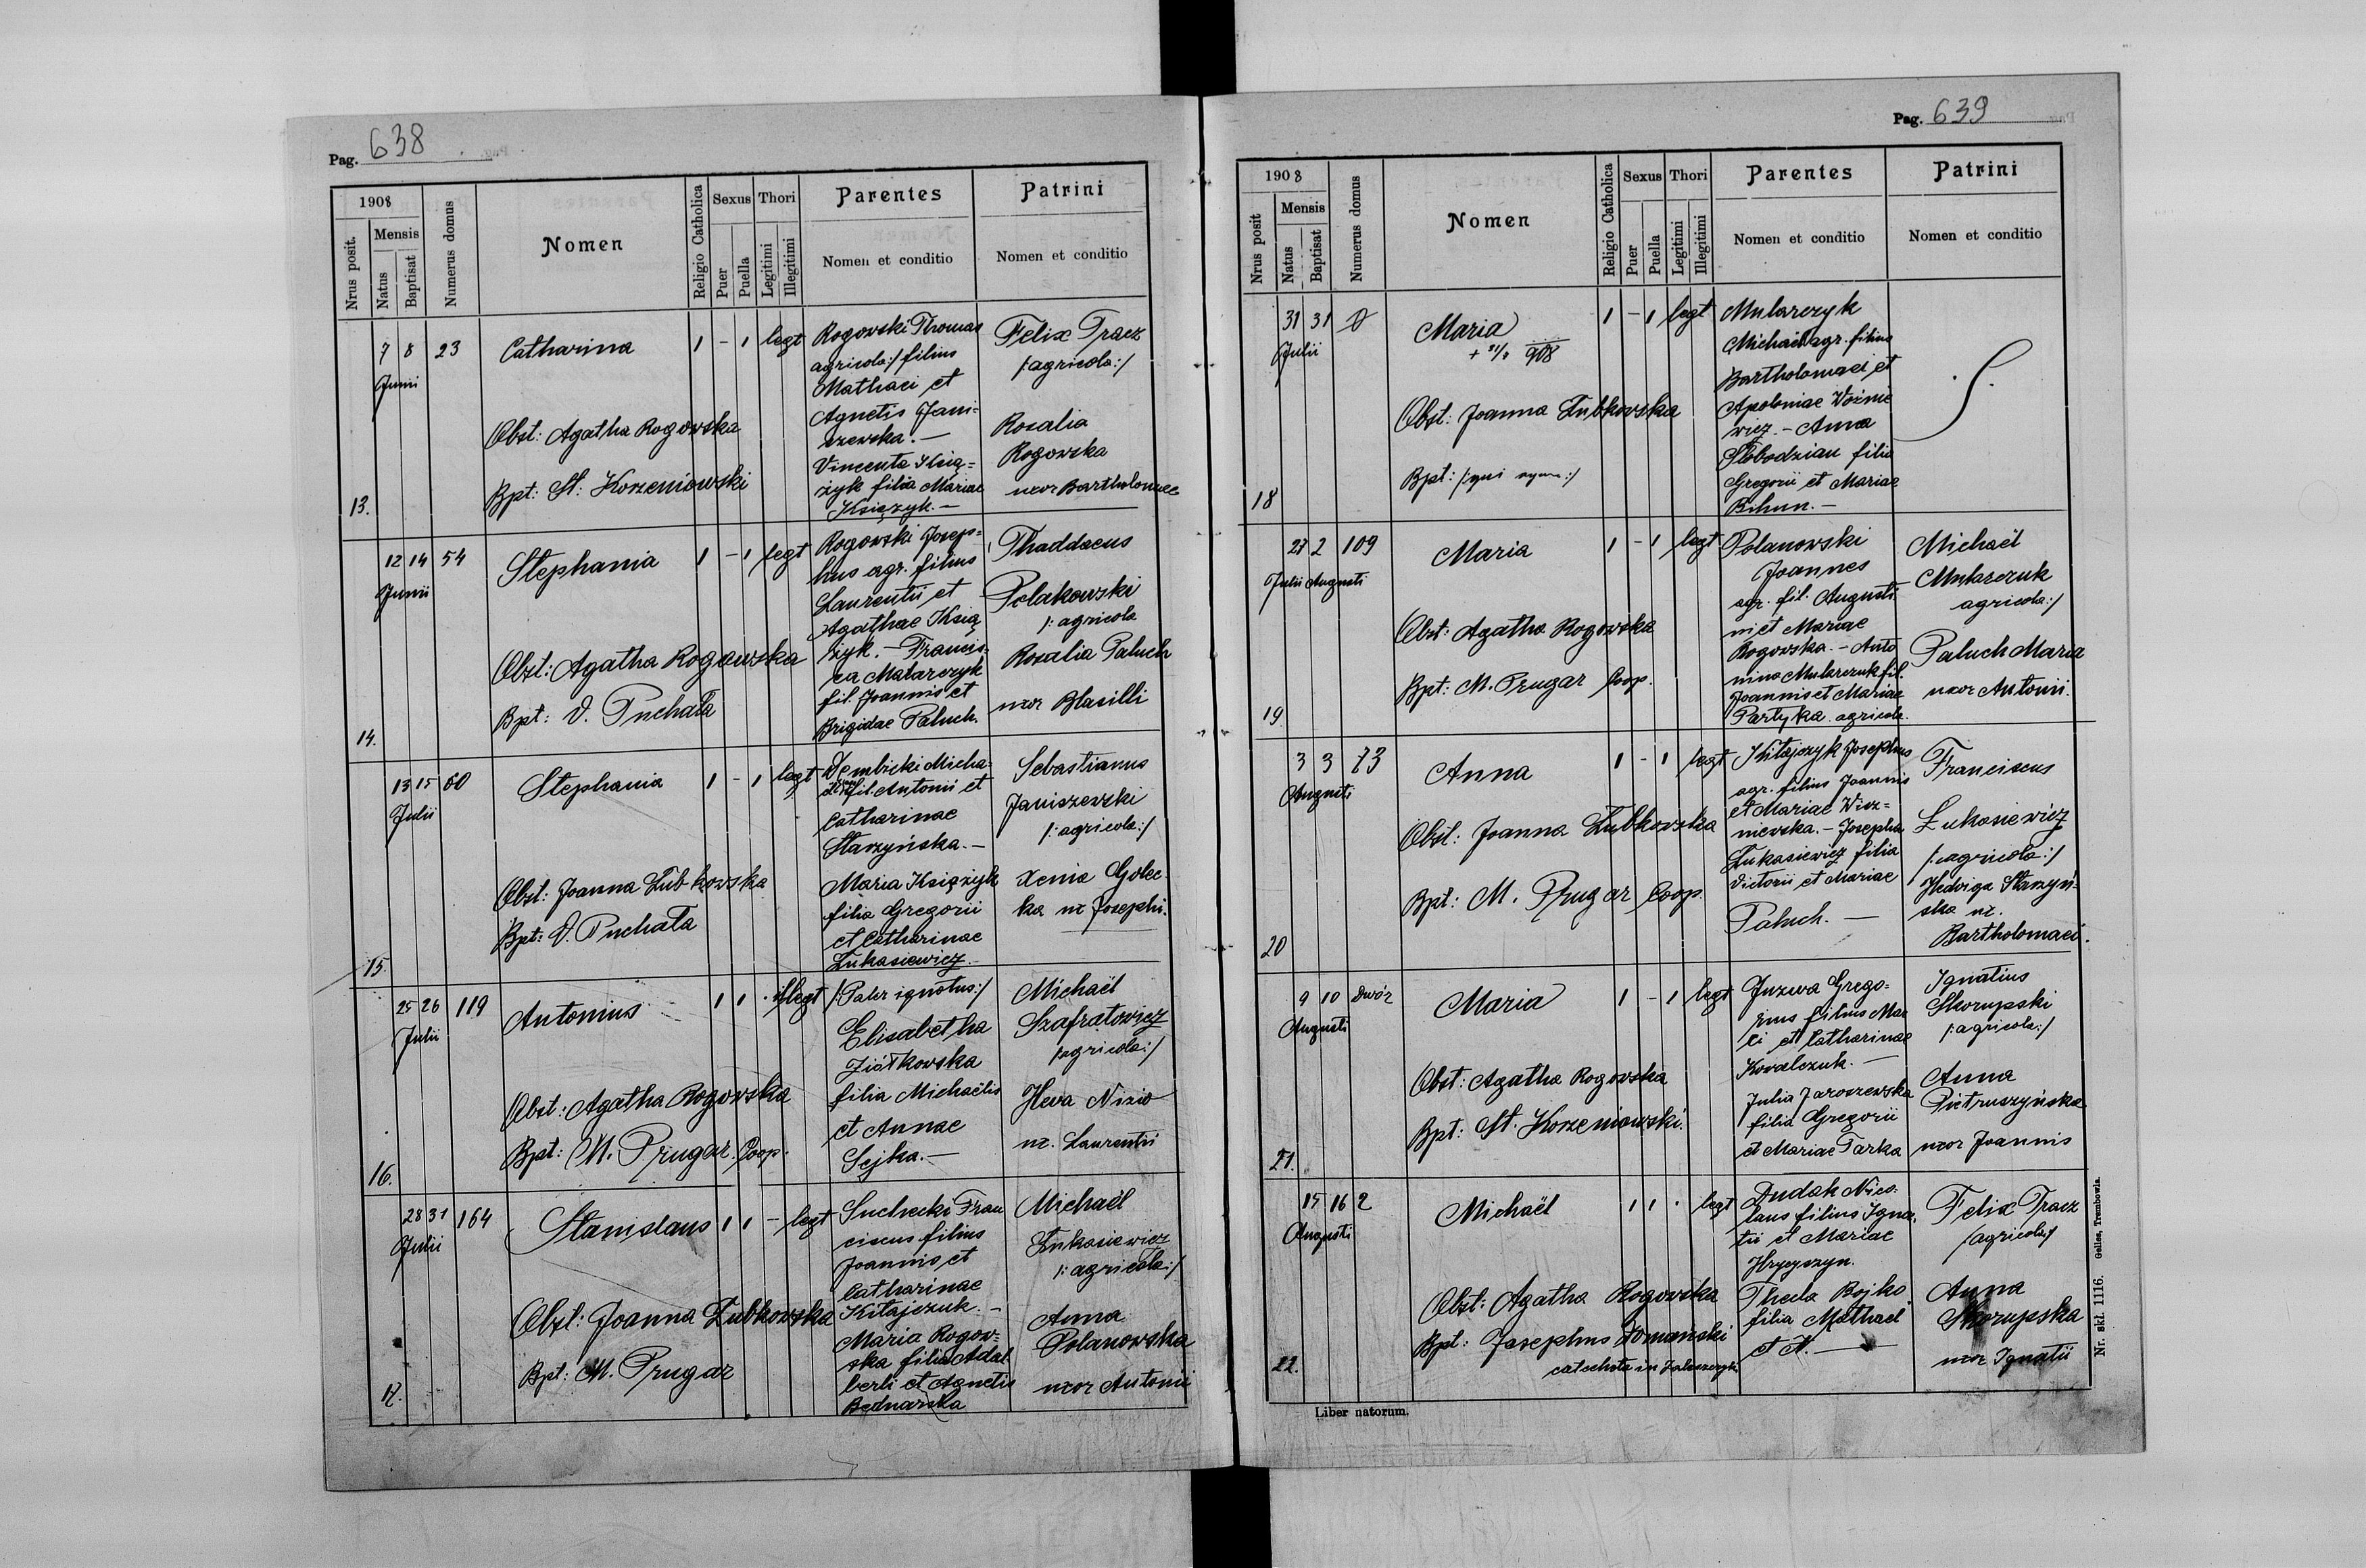 Pag. 638
1908
Nrus posit.
Mensis
Natus
Baptisat
Numerus domus
Nomen
Religio Catholica
Sexus
Puer
Puella
Thori
Legitimi
Illegitimi
Parentes
Nomen et conditio
Patrini
Nomen et conditio
13.
7 8 23
Junii
Catharina
1 - 1 legt
Obst: Agatha Rogowska
Bpt: St: Korzeniowski
Rogowski Thomas
agricola:/ filius
Mathaei et
Agnetis Jani-
szewska. —
Vincenta Ksią=
żyk filia Mariae
Książyk. —
Felix Tracz
/:agricola:/
Rosalia
Rogowska
uxor Bartholomaei
14.
12 14 54
Junii
Stephania
1 - 1 legt
Obst: Agatha Rogowska
Bpt: V. Puchała
Rogowski Josep=
hus agr. filius
Laurentii et
Agathae Ksią
żyk. - Francis=
ca Mularczyk
fil. Joannis et
Brigidae Paluch.
Thaddaeus
Polakowski
/: agricola
Rosalia Paluch
uxor Blasilli
15.
13 15 60
Julii
Stephania
1 - 1 legt
Obst: Joanna Łubkowska
Bpt: V. Puchała
Dembicki Micha=
fil. Antonii et
Catharinae
Starzyńska. —
Maria Książyk
filia Gregorii
et Catharinae
Łukasiewicz.
Sebastianus
Janiszewski
/: agricola:/
Xenia Golec
ka ux Josephi.
16.
25 26 119
Julii
Antonius
1 1 . illegt
Obst: Agatha Rogowska
Bpt: M. Prugar. Coop.
/:Pater ignotus:/
Elisabetha
Ziółkowska
filia Michaëlis
et Annae
Sejka. —
Michaël
Szafratowicz
/agricola:/
Heva Nizio
ux. Laurentii
17.
28 31 164
Julii
Stanislaus
1 1 - legt
Obst: Joanna Łubkowska
Bpt: M. Prugar
Suchecki Fran
ciscus filius
Joannis et
Catharinae
Kitajczuk. -
Maria Rogow=
ska filia Adal
berti et Agnetis
Bednarska
Michaël
Łukasiewicz
/: agricola:/
Anna
Polanowska
uxor Antonii
Pag. 639
1908
Nrus posit
Mensis
Natus
Baptisat
Numerus domus
Nomen
Religio Catholica
Sexus
Puer
Puella
Thori
Legitimi
Illegitimi
Parentes
Nomen et conditio
Patrini
Nomen et conditio
18
31 31
Julii
Maria
908
1 - 1 legt
Obst: Joanna Łubkowska
Bpt: /:qui supra:/
Mularczyk
Michaël agr. filius
Bartholomaei et
Apoloniae Woźnie
wicz. - Anna
Słobodzian filia
Gregorii et Mariae
Bihun. —
19
27 2 109
Julii Augusti
Maria
1 - 1 legt
Obst: Agatha Rogowska
Bpt: M. Prugar Coop.
Polanowski
Joannes
agr. fil. Augusti
ni et Mariae
Rogowska. - Anto
nina Mularczuk fil.
Joannis et Mariae
Partyka agricola.
Michaël
Mularczuk
agricola:/
Paluch Maria
uxor Antonii.
20
3 3 73
Augusti
Anna
1 - 1 legt
Obst: Joanna Łubkowska
Bpt: M. Prugar Coop.
Kitajczyk Josephus
agr. filius Joannis
et Mariae Wisz=
niewska. - Josepha
Łukasiewicz filia
Victorii et Mariae
Paluch. —
Franciscus
Łukasiewicz
/:agricola:/
Hedviga Starzyń-
ska ux.
Bartholomaei.
21.
9 10 Dwór
Augusti
Maria
1 - 1 legt
Obst: Agatha Rogowska
Bpt: St. Korzeniowski.
Juzwa Grego=
rius filius Mar
ci et Catharinae
Kowalczuk. —
Julia Jaroszewska
filia Gregorii
et Mariae Tarka
Ignatius
Skorupski
/:agricola:/
Anna
Pietruszyńska
uxor Joannis
22.
15 16 2
Augusti
Michaël
1 1 . legt
Obst: Agatha Rogowska
Bpt: Josephus Domański
catecheta in Zaleszczyki
Dudak Nico=
laus filius Igna,
tii et Mariae
Hryczszyn.
Thecla Bojko
filia Mathaei
et N. —
Felix Tracz
/agricola/
Anna
Skorupska
uxor Ignatii
Liber natorum.
Nr. skł. 1116. Gelles, Trembowla.